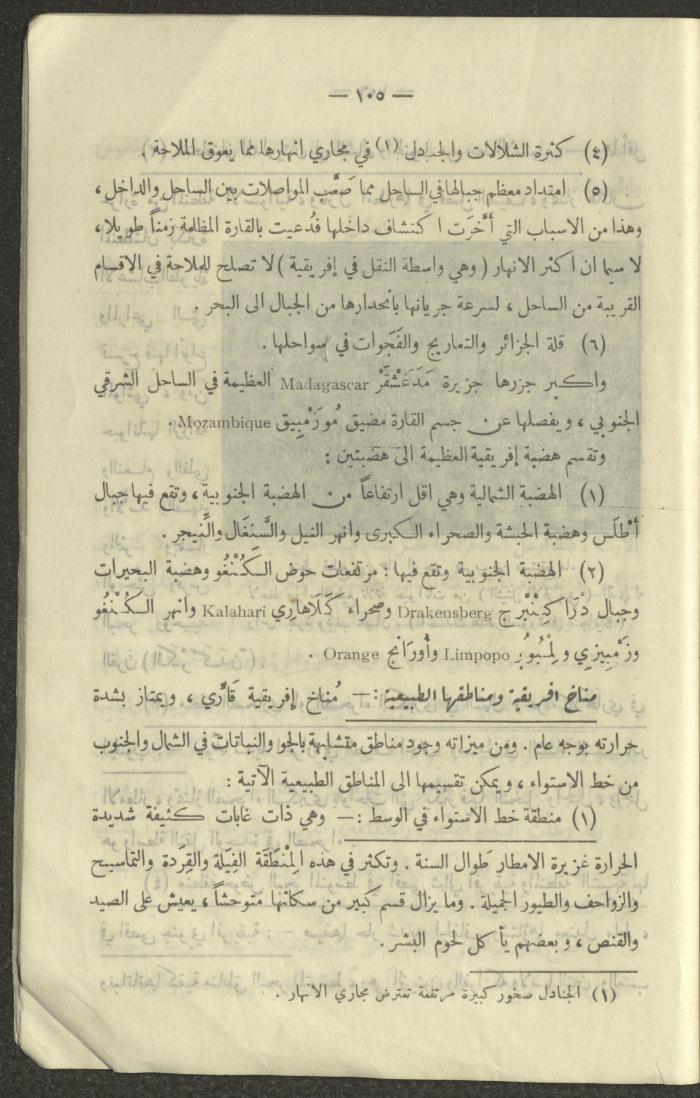 — ١٠٥ —
(٤) كثرة الشلالات والجنادل (١) في مجاري انهارها مما يعوق الملاحة .
(٥) امتداد معظم جبالها في الساحل مما صَعَّب المواصلات بين الساحل والداخل ،
وهذا من الاسباب التي أَخَّرَت اكتشاف داخلها فدُعيت بالقارة المظلمة زمناً طويلا ،
لا سيما ان اكثر الانهار ( وهي واسطة النقل في إفريقية ) لا تصلح للملاحة في الاقسام
القريبة من الساحل ، لسرعة جريانها بانحدارها من الجبال الى البحر .
(٦) قلة الجزائر والتعاريج والفَجَوات في سواحلها .
واكبر جزرها جزيرة مَدَغَشْقَرْ Madagascar العظيمة في الساحل الشرقي
الجنوبي ، ويفصلها عن جسم القارة مضيق مُوزَمْبِيق Mozambique .
وتقسم هضبة إفريقية العظيمة الى هضبتين :
(١) الهضبة الشمالية وهي اقل ارتفاعاً من الهضبة الجنوبية ، وتقع فيها جبال
أَطْلَس وهضبة الحبشة والصحراء الكبرى وانهر النيل والسَّنغَال والنِّيجر .
(٢) الهضبة الجنوبية وتقع فيها : مرتفعات حوض الكُنْغُو وهضبة البحيرات
وجبال دْرَاكِنْبِرج Drakensberg وصحراء كَلَاهَارِي Kalahari وانهر الكُنْغُو
وزَمْبِيزِي ولِمْبُوبُ Limpopo وأُورَانج Orange .
مناخ افريقية ومناطقها الطبيعية :— مُناخ إفريقية قَارِّي ، ويمتاز بشدة
حرارته بوجه عام . ومن ميزاته وجود مناطق متشابهة بالجو والنباتات في الشمال والجنوب
من خط الاستواء ، ويمكن تقسيمها الى المناطق الطبيعية الآتية :
(١) منطقة خط الاستواء في الوسط :— وهي ذات غابات كثيفة شديدة
الحرارة غزيرة الامطار طَوال السنة . وتكثر في هذه المِنْطَقَة الفِيَلة والقِرَدة والتماسيح
والزواحف والطيور الجميلة . وما يزال قسم كبير من سكانها متوحشاً ، يعيش على الصيد
والقنص ، وبعضهم يأكل لحوم البشر .
(١) الجنادل صخور كبيرة مرتفعة تعترض مجاري الانهار .